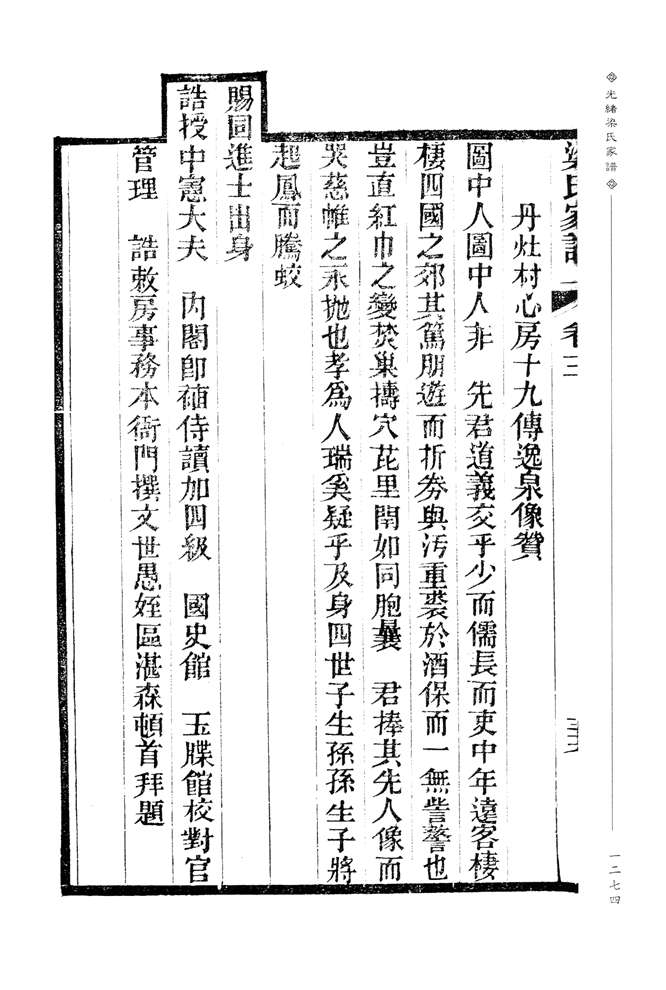 光緒梁氏家譜
一二七四
梁氏家譜 卷三
丹灶村心房十九傳逸泉像贊
圖中人圖中人非 先君道義交乎少而儒長而吏中年遠客棲
棲四國之郊其篤朋遊而折券與污重裘於酒保而一無訾謷也
豈直紅巾之變焚巢擣穴芘里閈如同胞曩 君捧其先人像而
哭慈帷之永拋也孝為人瑞奚疑乎及身四世子生孫孫生子將
起鳳而騰蛟
賜同進士出身
誥授中憲大夫 內閣即補侍讀加四級 國史館 玉牒館校對官
管理 誥敕房事務本衙門撰文世愚姪區湛森頓首拜題